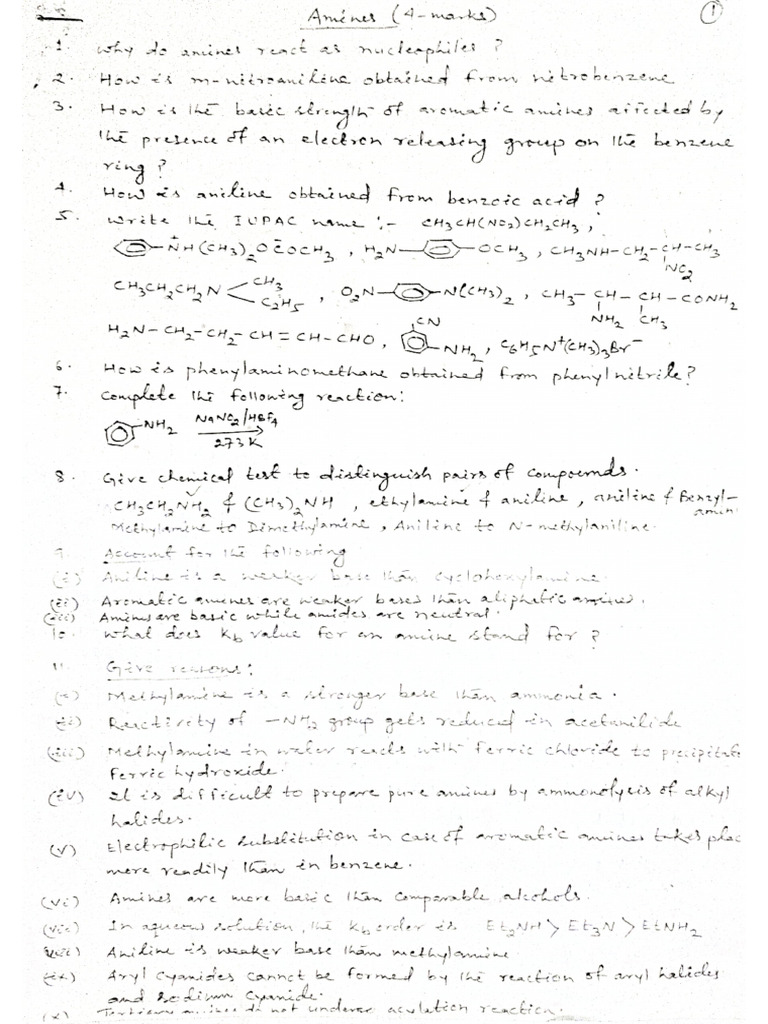 Amines (4-marks)
1
1. Why do amines react as nucleophiles ?
2. How is m-nitroaniline obtained from nitrobenzene
3. How is the basic strength of aromatic amines affected by
the presence of an electron releasing group on the benzene
ring ?
4. How is aniline obtained from benzoic acid ?
5. Write the IUPAC name :- CH3CH(NO2)CH2CH3,
NH(CH3)2OCOCH3, H2N- -OCH3, CH3NH-CH2-CH-CH3
NO2
CH3CH2CH2N CH3 C2H5, O2N- -N(CH3)2, CH3-CH-CH-CONH2
NH2 CH3
CN
H2N-CH2-CH2-CH=CH-CHO, -NH2, C6H5N+(CH3)3Br-
6. How is phenylaminomethane obtained from phenylnitrile?
7. Complete the following reaction:
-NH2 NaNO2/HBF4
273K
8. Give chemical test to distinguish pairs of compounds.
CH3CH2NH2 & (CH3)2NH, ethylamine & aniline, aniline & Benzyl-
amin
Methylamine to Dimethylamine, Aniline to N-methylaniline.
9. Account for the following
(i) Aniline is a weaker base than cyclohexylamine.
(ii) Aromatic amines are weaker bases than aliphatic amines.
(iii) Amines are basic while amides are neutral.
10. What does Kb value for an amine stand for ?
11. Give reasons:
(i) Methylamine is a stronger base than ammonia.
(ii) Reactivity of -NH2 group gets reduced in acetanilide
(iii) Methylamine in water reacts with ferric chloride to precipitate
ferric hydroxide.
(iv) It is difficult to prepare pure amines by ammonolysis of alkyl
halides.
(v) Electrophilic substitution in case of aromatic amines takes plac
more readily than in benzene.
(vi) Amines are more basic than comparable alcohols.
(vii) In aqueous solution, the Kb order is Et2NH > Et3N > EtNH2
(viii) Aniline is weaker base than methylamine
(ix) Aryl cyanides cannot be formed by the reaction of aryl halides
and sodium cyanide.
(x) Tertiary amines do not undergo acylation reaction.